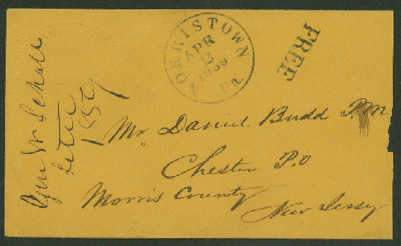 NORRISTOWN Pa.
APR
2
1859
FREE
Gen W Schall
Letter
1859
Mr Daniel Budd P.M
Chester P.O
Morris County
New Jersey